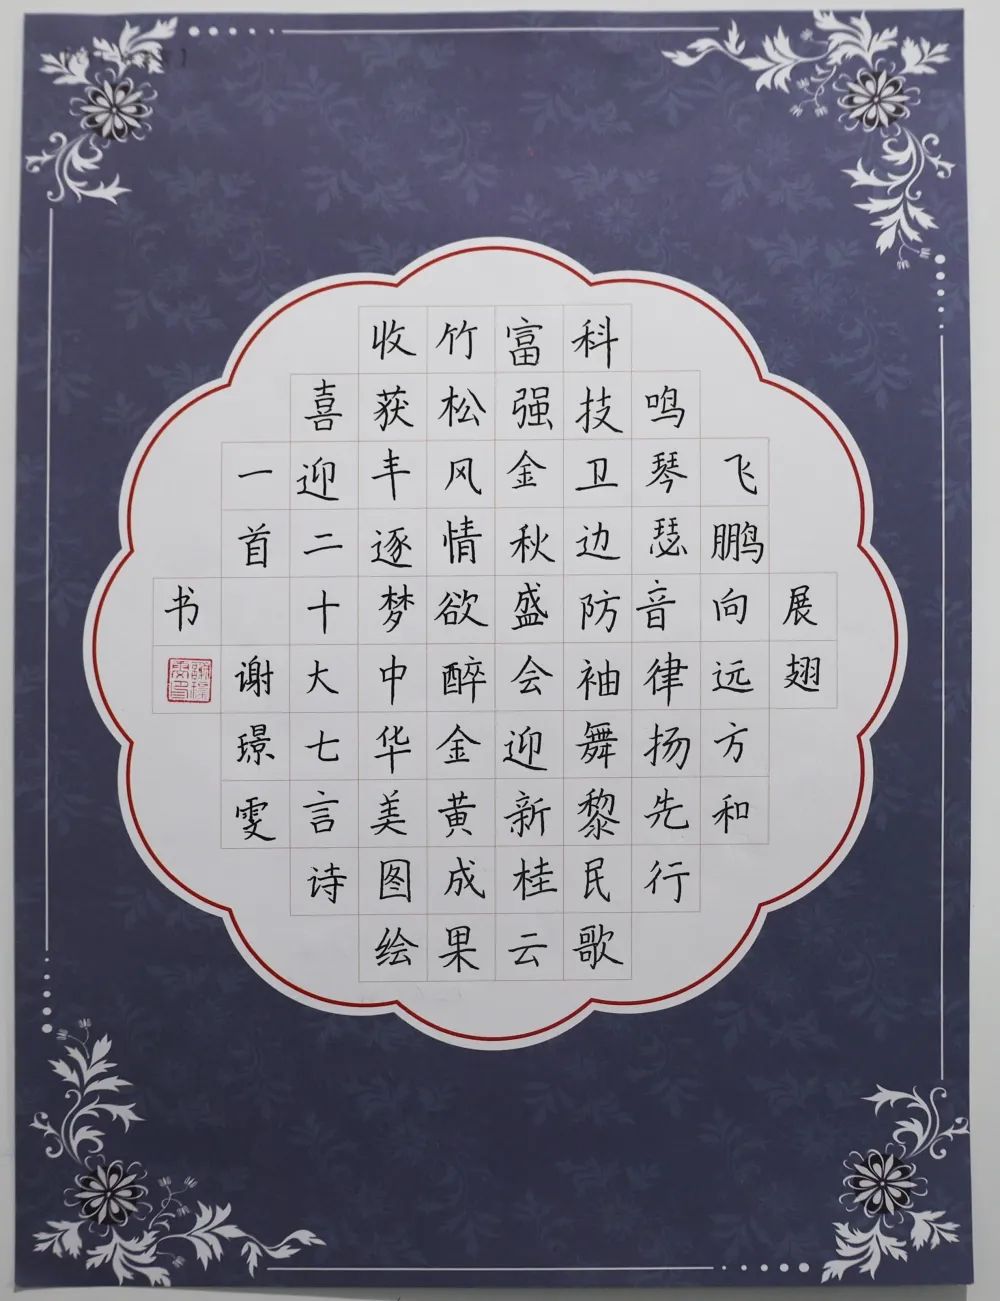 展翅
飞鹏向远方和
鸣琴瑟音律扬先行
科技卫边防袖舞黎民歌
富强金秋盛会迎新桂云
竹松风情欲醉金黄成果
收获丰逐梦中华美图绘
喜迎二十大七言诗
一首 谢璟雯
书